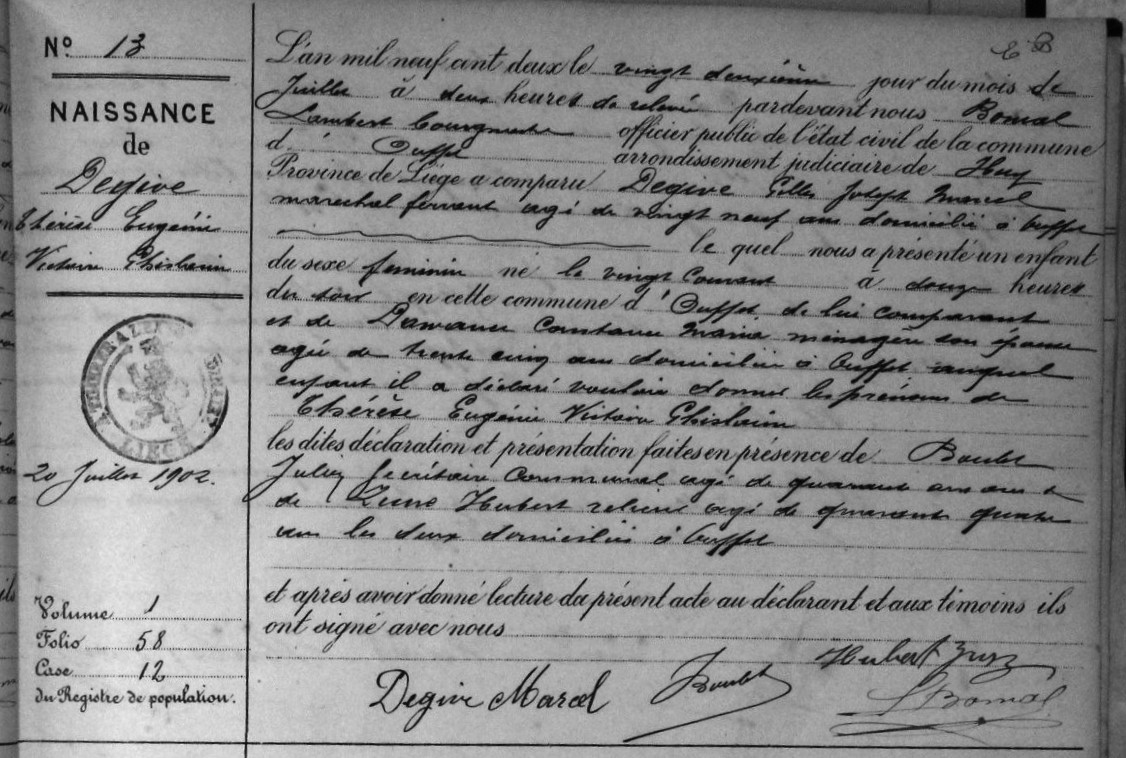 N° 13
NAISSANCE
de
Degive
Thérèse Eugénie
Victoire Ghislain
20 Juillet 1902.
Volume 1
Folio 58
Case 12
du Registre de population.
E B
L'an mil neuf cent deux le vingt deuxième jour du mois de
Juillet à deux heures de relevée pardevant nous Bomal
Lambert officier public de l'état civil de la commune
d' Ouffet arrondissement judiciaire de Huy
Province de Liège a comparu Degive Gilles Joseph Marcel
maréchal ferrant agé de vingt neuf ans domicilié à Ouffet
le quel nous a présenté un enfant
du sexe feminin né le vingt Courant à douze heures
du soir en cette commune d'Ouffet, de lui comparant
et de Constance Maria ménagère son épouse
agée de trente cinq ans domiciliée à Ouffet auquel
enfant il a déclaré vouloir donner les prénoms de
Thérèse Eugénie Victoire Ghislain
les dites déclaration et présentation faites en présence de Boulet
Julien Secrétaire Communal agé de quarante ans et
de Hubert agé de quarante quatre
ans les deux domiciliés à Ouffet
et après avoir donné lecture du présent acte au déclarant et aux témoins ils
ont signé avec nous
Degive Marcel
Boulet
Hubert
L Bomal